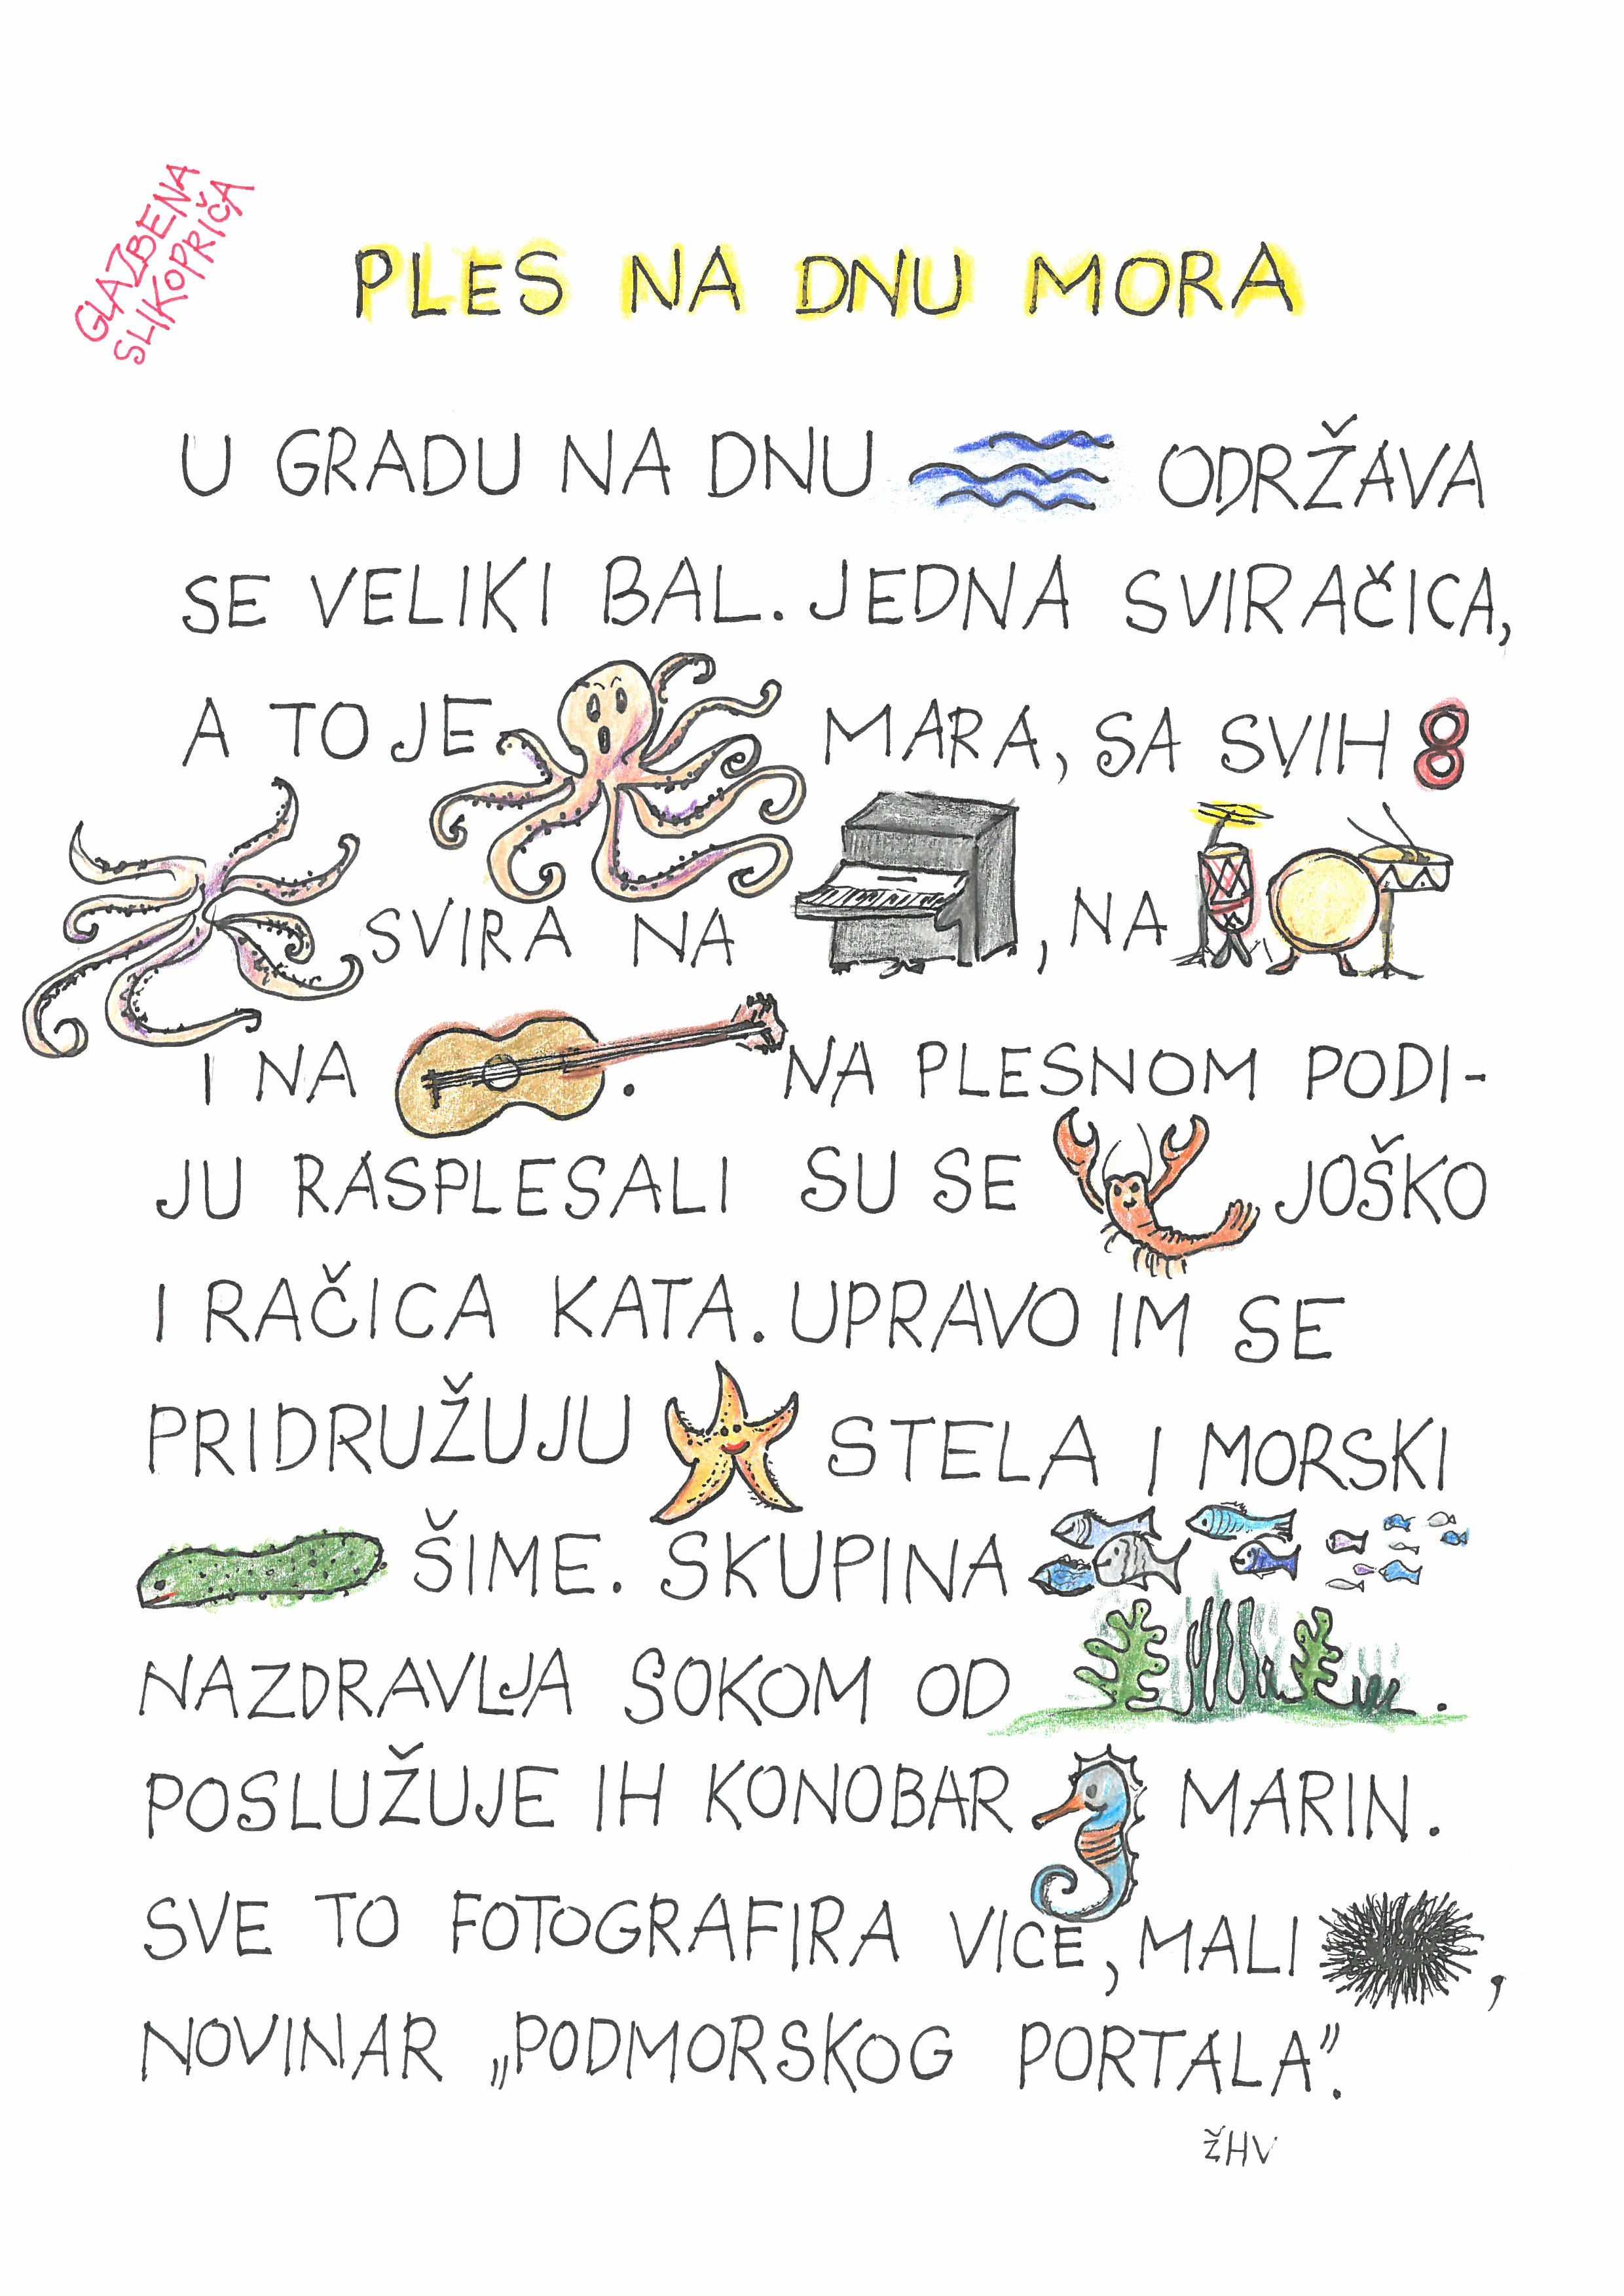 GLAZBENA
SLIKOPRIČA
PLES NA DNU MORA
U GRADU NA DNU ODRŽAVA
SE VELIKI BAL. JEDNA SVIRAČICA,
A TO JE MARA, SA SVIH 8
SVIRA NA , NA
I NA . NA PLESNOM PODI-
JU RASPLESALI SU SE JOŠKO
I RAČICA KATA. UPRAVO IM SE
PRIDRUŽUJU STELA I MORSKI
ŠIME. SKUPINA
NAZDRAVLJA SOKOM OD .
POSLUŽUJE IH KONOBAR MARIN.
SVE TO FOTOGRAFIRA VICE, MALI ,
NOVINAR „PODMORSKOG PORTALA”.
ŽHV